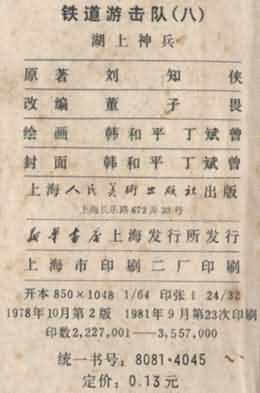 铁道游击队(八)
湖上神兵
原著 刘知侠
改编 董子畏
绘画 韩和平 丁斌曾
封面 韩和平 丁斌曾
上海人民美術出版社出版
上海长乐路672弄33号
新华書店上海发行所发行
上海市印刷二厂印刷
开本 850×1048 1/64 印张 1 24/32
1978年10月第2版 1981年9月第23次印刷
印数2,227,001——3,557,000
统一书号：8081·4045
定价：0.13元